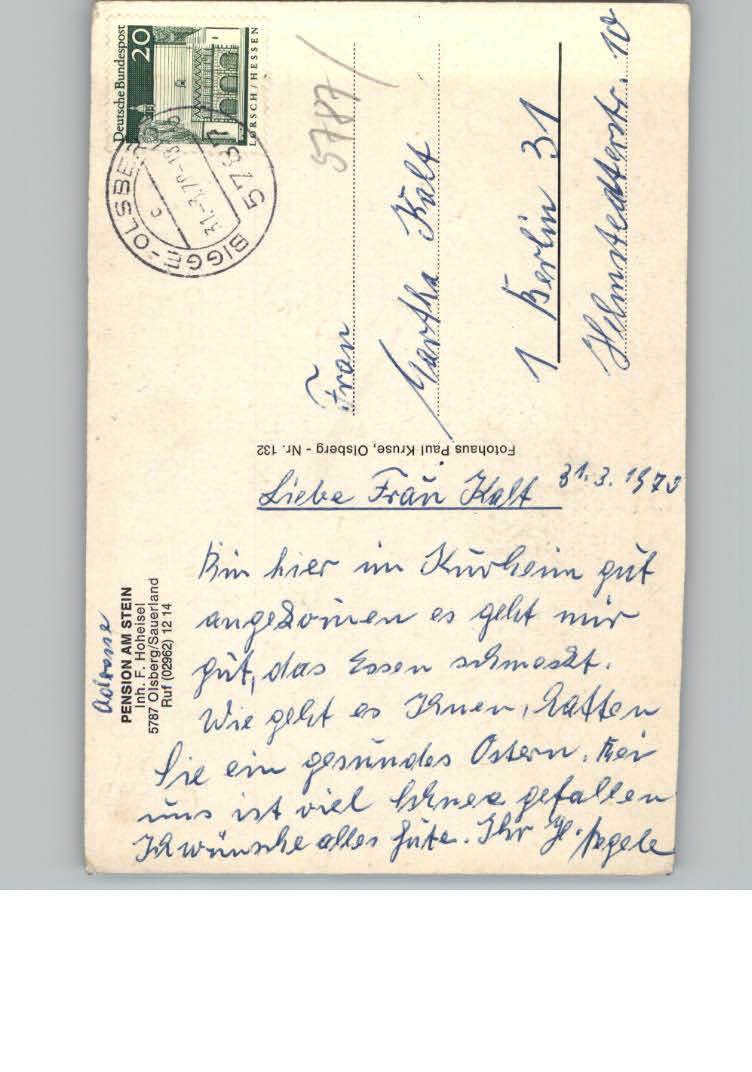 Deutsche Bundespost
20
LORSCH/HESSEN
5787 BIGGE-OLSBERG
c
31.-3.70-18
5787
Frau
Martha Kalt
1 Berlin 31
Helmstedterstr. 10
Fotohaus Paul Kruse, Olsberg - Nr. 132
Adresse
PENSION AM STEIN
Inh. F. Hoheisel
5787 Olsberg/Sauerland
Ruf (02962) 12 14
31.3.1970
Liebe Frau Kalt
Bin hier im Kurheim gut
angekomen es geht mir
gut, das Essen schmeckt.
Wie geht es Ihnen, hatten
Sie ein gesundes Ostern. Bei
uns ist viel Schnee gefallen
Ich wünsche alles Gute. Ihr H.